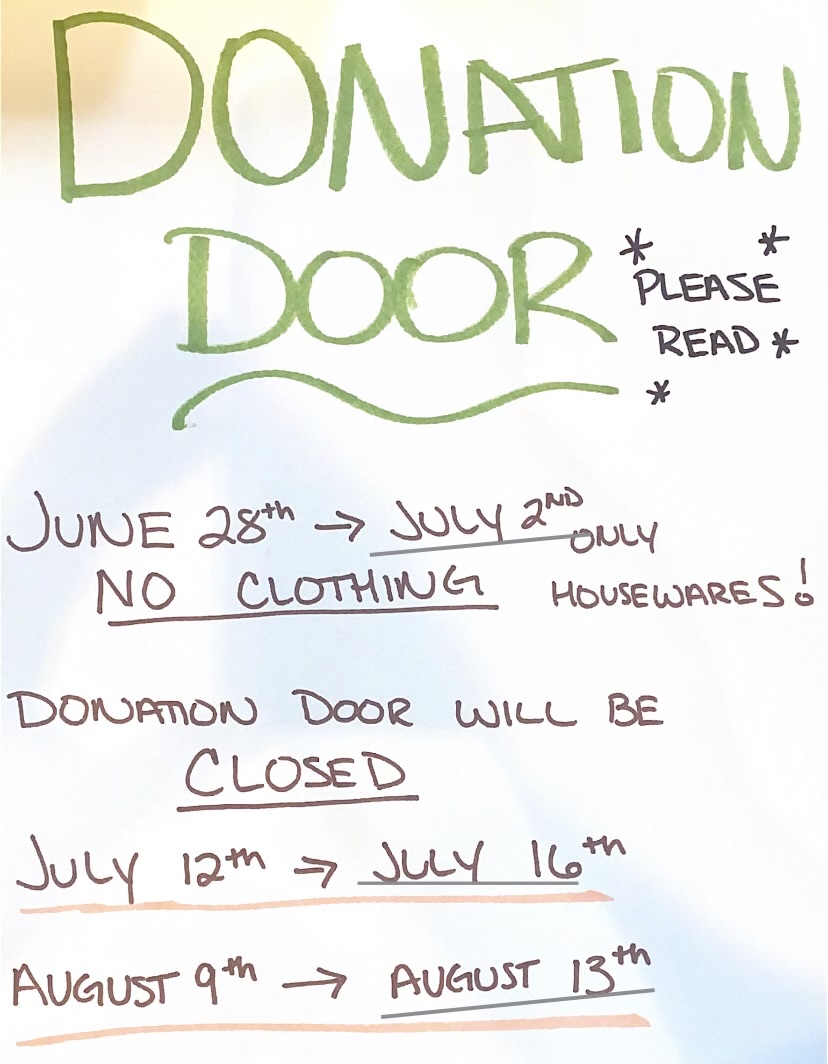 DONATION
DOOR
* *
PLEASE
READ *
*
JUNE 28th → JULY 2ND ONLY
NO CLOTHING HOUSEWARES!
DONATION DOOR WILL BE
CLOSED
JULY 12th → JULY 16th
AUGUST 9th → AUGUST 13th